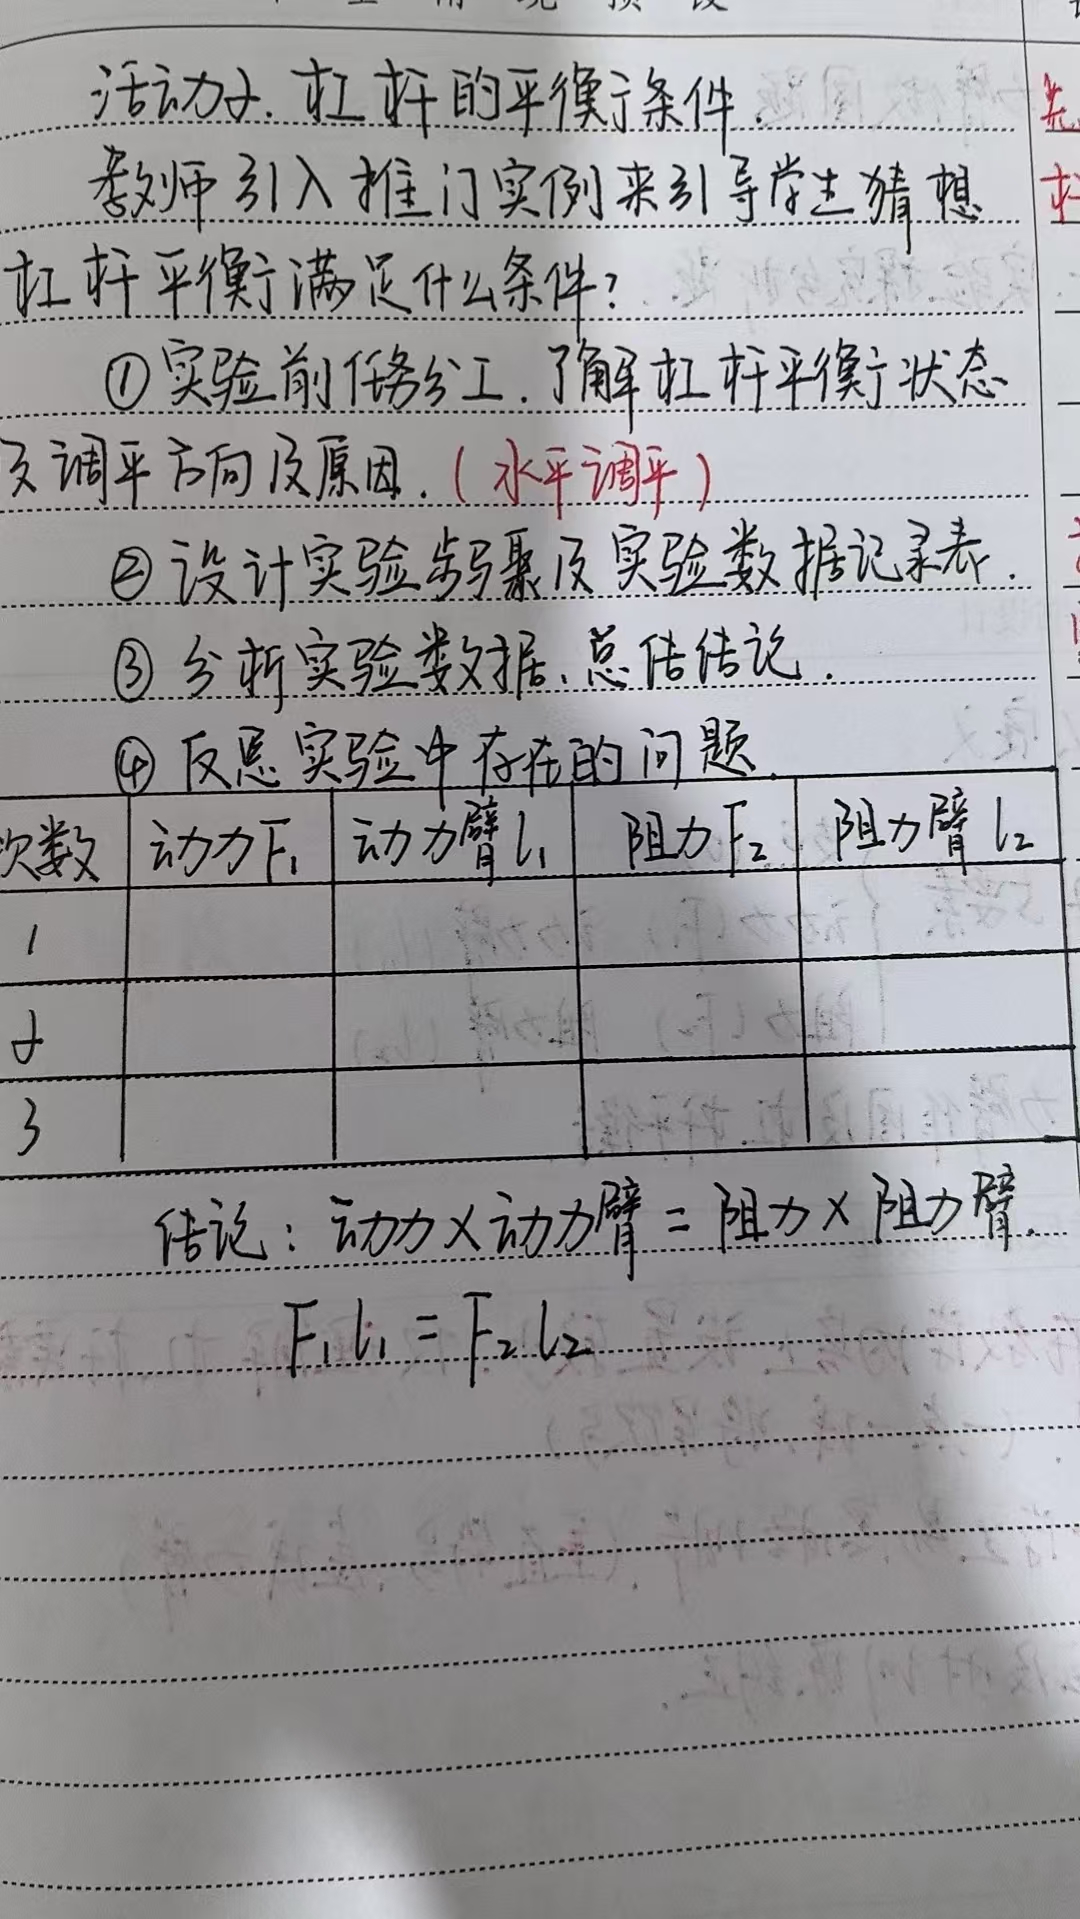 活动2. 杠杆的平衡条件.
教师引入推门实例来引导学生猜想
杠杆平衡满足什么条件?
①实验前任务分工.了解杠杆平衡状态
及调平方向及原因.(水平调平)
②设计实验步骤及实验数据记录表.
③分析实验数据.总结结论.
④反思实验中存在的问题.
次数 动力F₁ 动力臂l₁ 阻力F₂ 阻力臂l₂
1
2
3
结论:动力×动力臂=阻力×阻力臂.
F₁l₁=F₂l₂